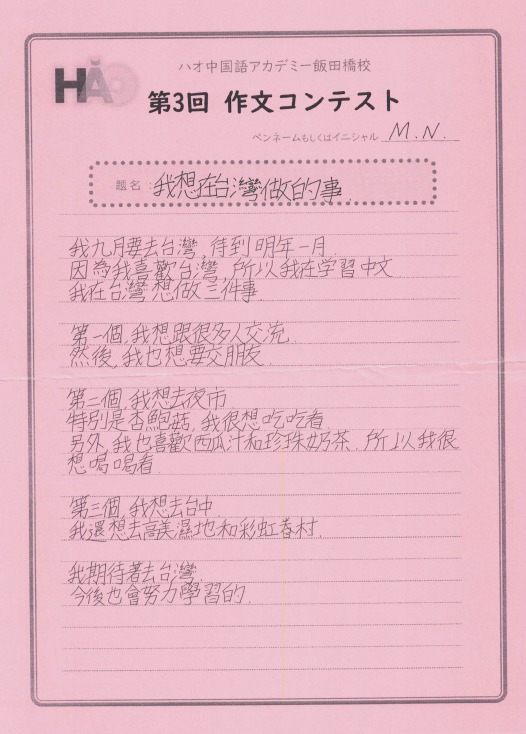 HǍO
ハオ中国語アカデミー飯田橋校
第3回 作文コンテスト
ペンネームもしくはイニシャル M.N.
題名：我想在台灣做的事
我九月要去台灣，待到明年一月
因為我喜歡台灣，所以我在学習中文
我在台灣想做三件事.
第一個，我想跟很多人交流.
然後，我也想要交朋友
第二個，我想去夜市
特別是杏鮑菇，我很想吃吃看.
另外，我也喜歡西瓜汁和珍珠奶茶.所以我很
想喝喝看.
第三個，我想去台中
我還想去高美濕地和彩虹眷村.
我期待著去台灣.
今後也會努力學習的.